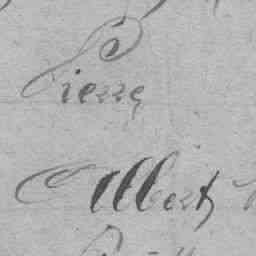 Pierre
Albert